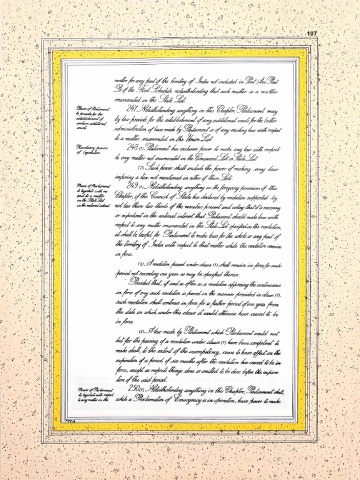 107
matter for any part of the territory of India not included in Part A or Part
B of the First Schedule notwithstanding that such matter is a matter
enumerated in the State List.
Power of Parliament
to provide for the
establishment of
certain additional
courts.
247. Notwithstanding anything in this Chapter, Parliament may
by law provide for the establishment of any additional courts for the better
administration of laws made by Parliament or of any existing laws with respect
to a matter enumerated in the Union List.
Residuary powers
of legislation.
248.(1). Parliament has exclusive power to make any law with respect
to any matter not enumerated in the Concurrent List or State List.
(2). Such power shall include the power of making any law
imposing a tax not mentioned in either of those Lists.
Power of Parliament
to legislate with res-
pect to a matter
in the State List
in the national interest.
249.(1). Notwithstanding anything in the foregoing provisions of this
Chapter, if the Council of States has declared by resolution supported by
not less than two thirds of the members present and voting that it is necessary
or expedient in the national interest that Parliament should make laws with
respect to any matter enumerated in the State List specified in the resolution,
it shall be lawful for Parliament to make laws for the whole or any part of
the territory of India with respect to that matter while the resolution remains
in force.
(2). A resolution passed under clause (1) shall remain in force for such
period not exceeding one year as may be specified therein:
Provided that, if and so often as a resolution approving the continuance
in force of any such resolution is passed in the manner provided in clause (1),
such resolution shall continue in force for a further period of one year from
the date on which under this clause it would otherwise have ceased to be
in force.
(3). A law made by Parliament which Parliament would not
but for the passing of a resolution under clause (1) have been competent to
make shall, to the extent of the incompetency, cease to have effect on the
expiration of a period of six months after the resolution has ceased to be in
force, except as respects things done or omitted to be done before the expira-
tion of the said period.
Power of Parliament
to legislate with respect
to any matter in the
250.(1). Notwithstanding anything in this Chapter, Parliament shall,
while a Proclamation of Emergency is in operation, have power to make